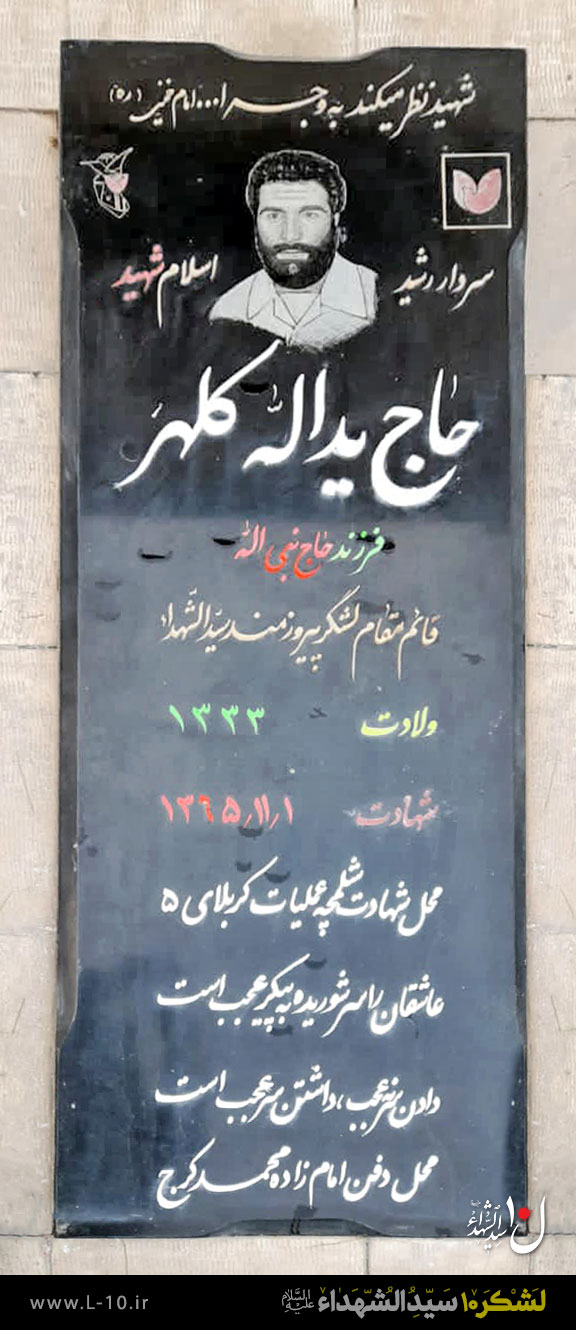 شهید نظر میکند به وجه الله... امام خمینی (ره)
سردار رشید اسلام شهید
حاج یداله کلهر
فرزند حاج نبی اله
قائم مقام لشگر پیروزمند سیدالشهداء
ولادت ۱۳۳۳
شهادت ۱۳۶۵/۱۱/۱
محل شهادت شلمچه عملیات کربلای ۵
عاشقان را سر شوریده به پیکر عجب است
دادن سر نه عجب، داشتن سر عجب است
محل دفن امام زاده محمد کرج
ل۱۰ سیدالشهداء
لشکر۱۰ سیّدالشّهداء علیه‌السلام
www.L-10.ir